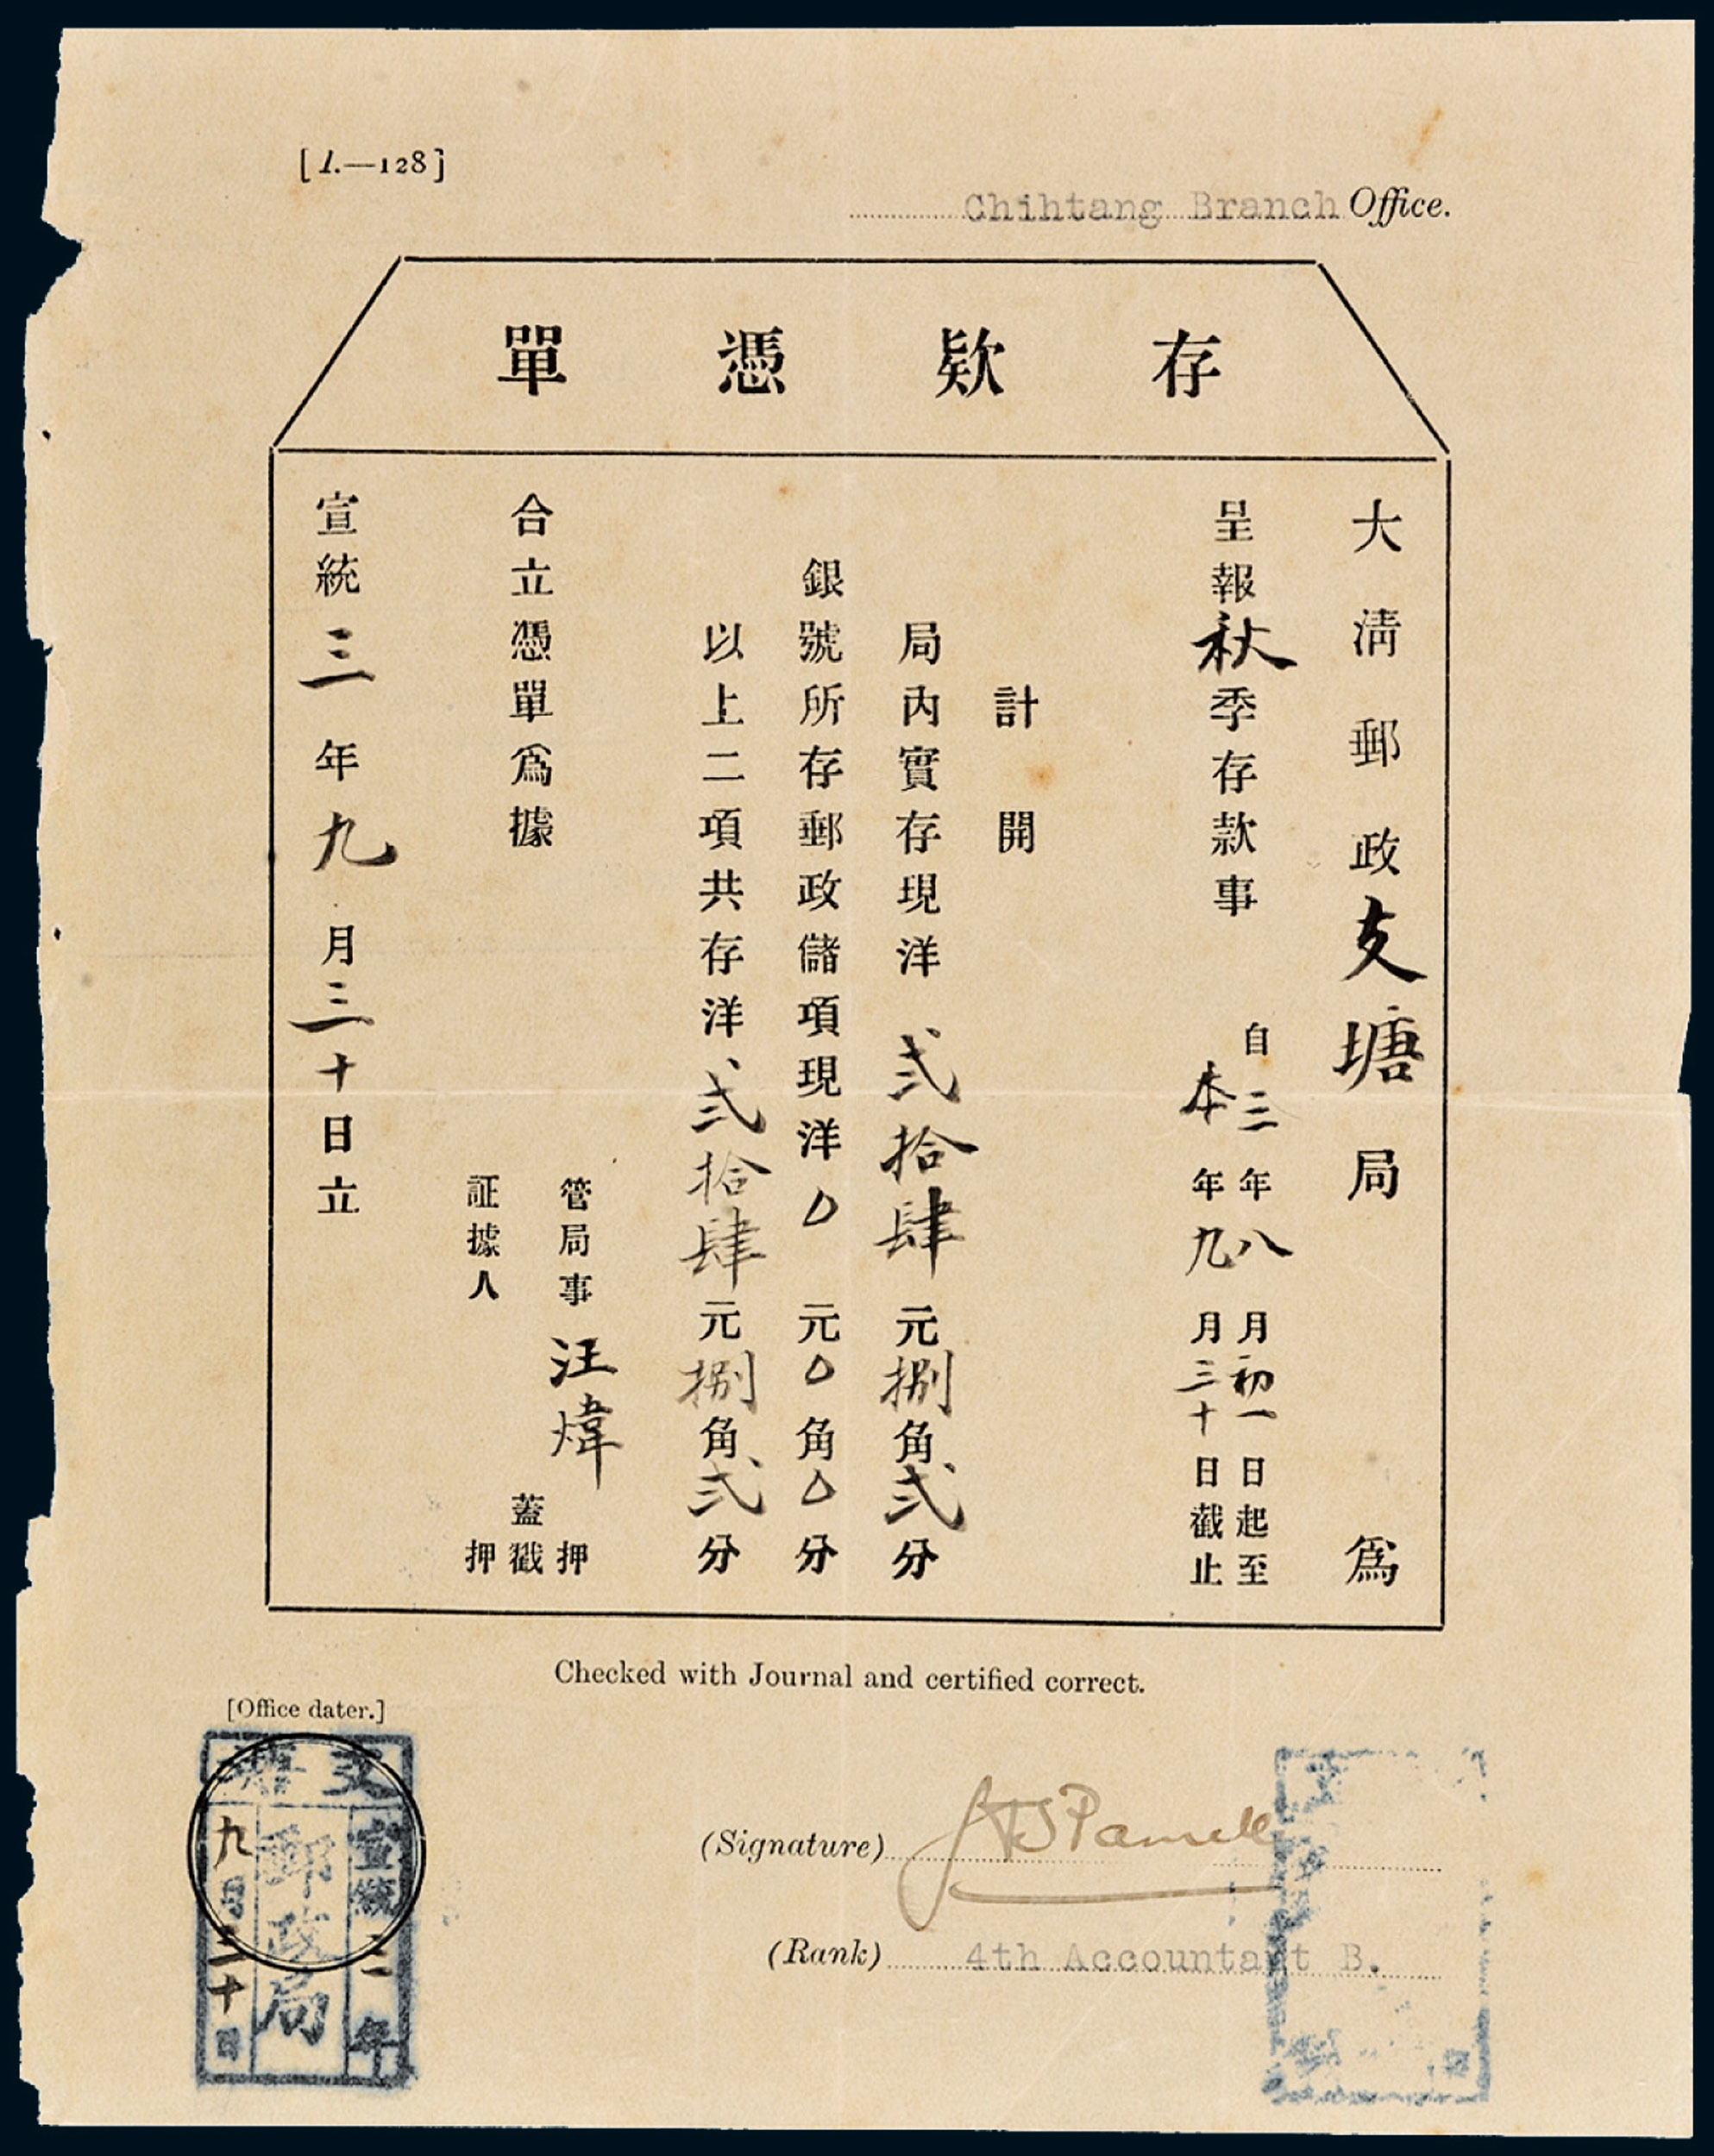 [1.—128]
Chihtang Branch Office.
存欵憑單
大清郵政支塘局爲
呈報秋季存款事
自三年八月初一日起至
本年九月三十日截止
計開
局內實存現洋弍拾肆元捌角弍分
銀號所存郵政儲項現洋0元0角0分
以上二項共存洋弍拾肆元捌角弍分
合立憑單爲據
管局事汪煒押
蓋戳
証據人押
宣統三年九月三十日立
Checked with Journal and certified correct.
[Office dater.]
支塘
宣統三年
郵政局
九月三十日
(Signature)
(Rank) 4th Accountant B.